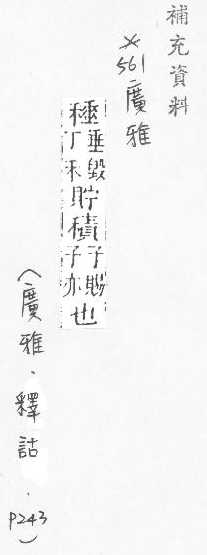 補充資料
※561 廣雅
䅜垂毀丁禾貯積子賜子亦也
(廣雅．釋詁．P243)